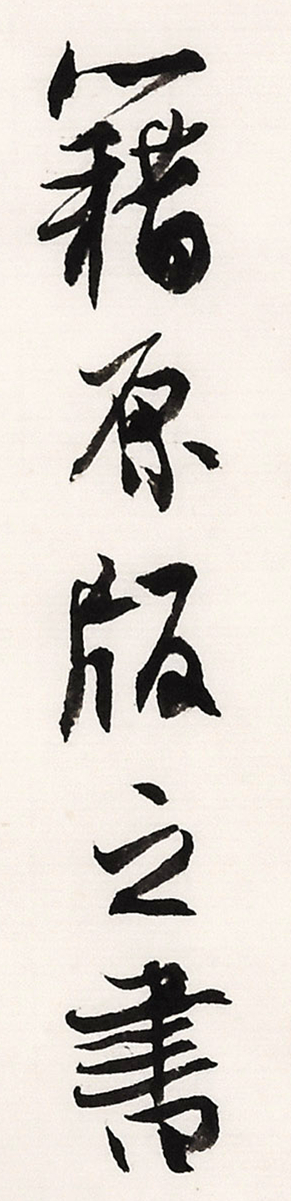 籍原版之書